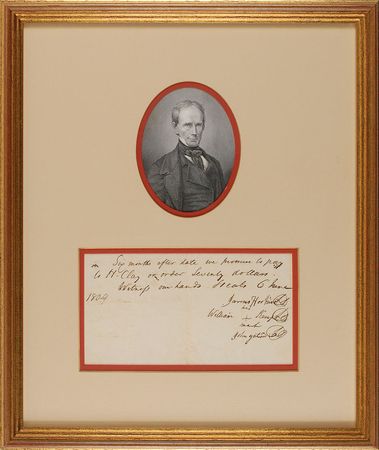 Six months after date we promise to pay
to H. Clay or order Seventy dollars.
Witness our hands & seals 6 June
1809
William
his
x
mark